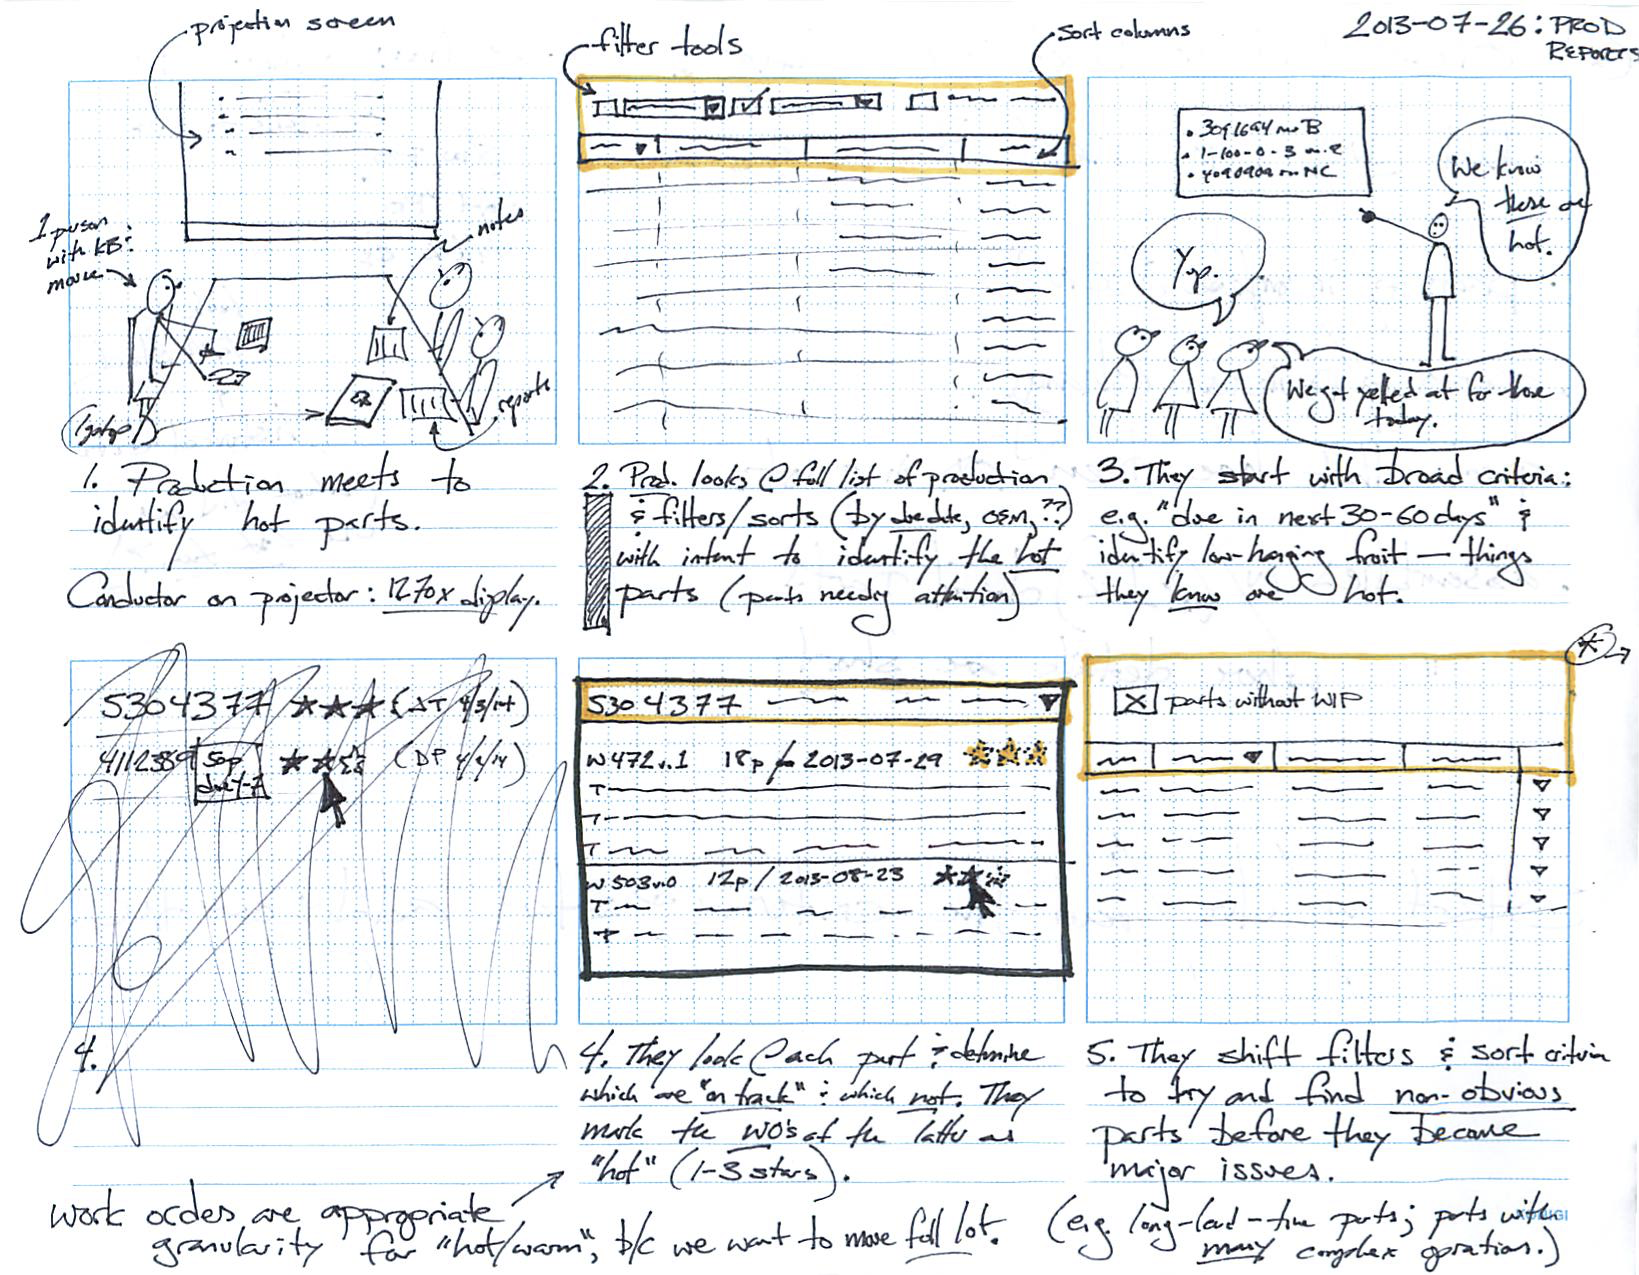 projection screen
filter tools
sort columns
2013-07-26: PROD
REPORTS
1 person
with KB:
mouse
notes
reports
We know
these are
hot.
Yup.
We got yelled at for those
today.
1. Production meets to
identify hot parts.
Conductor on projector: 1270x display.
2. Prod. looks @ full list of production
& filters/sorts (by due date, OEM, ??)
with intent to identify the hot
parts (parts needing attention)
3. They start with broad criteria:
e.g. "due in next 30-60 days" &
identify low-hanging fruit — things
they know are hot.
5304377 ★★★ 4/3/14)
4112389 50p ★★☆ (DP 4/2/14)
due 4-7
4.
5304377
W472v.1 18p / 2013-07-29 ★★★
T
T
T
W503v.0 12p / 2013-08-23 ★★☆
T
T
4. They look @ each part & determine
which are "on track" & which not. They
mark the WO's of the latter as
"hot" (1-3 stars).
*
☒ parts without WIP
5. They shift filters & sort criteria
to try and find non-obvious
parts before they become
major issues.
(e.g. long-lead-time parts; parts with
many complex operations.)
work orders are appropriate
granularity for "hot/warm", b/c we want to move full lot.